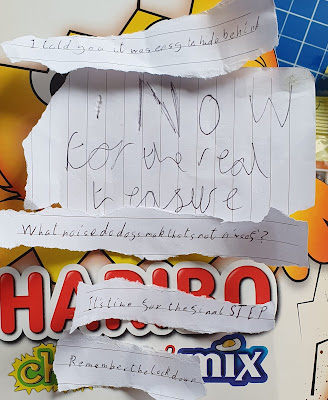 I told you it was easy to hide behind
Now
for the real
treasure
What noise do dogs mak thats not a woof?
HARIBO
It's time for the final STEP
mix
Remember the lockdown